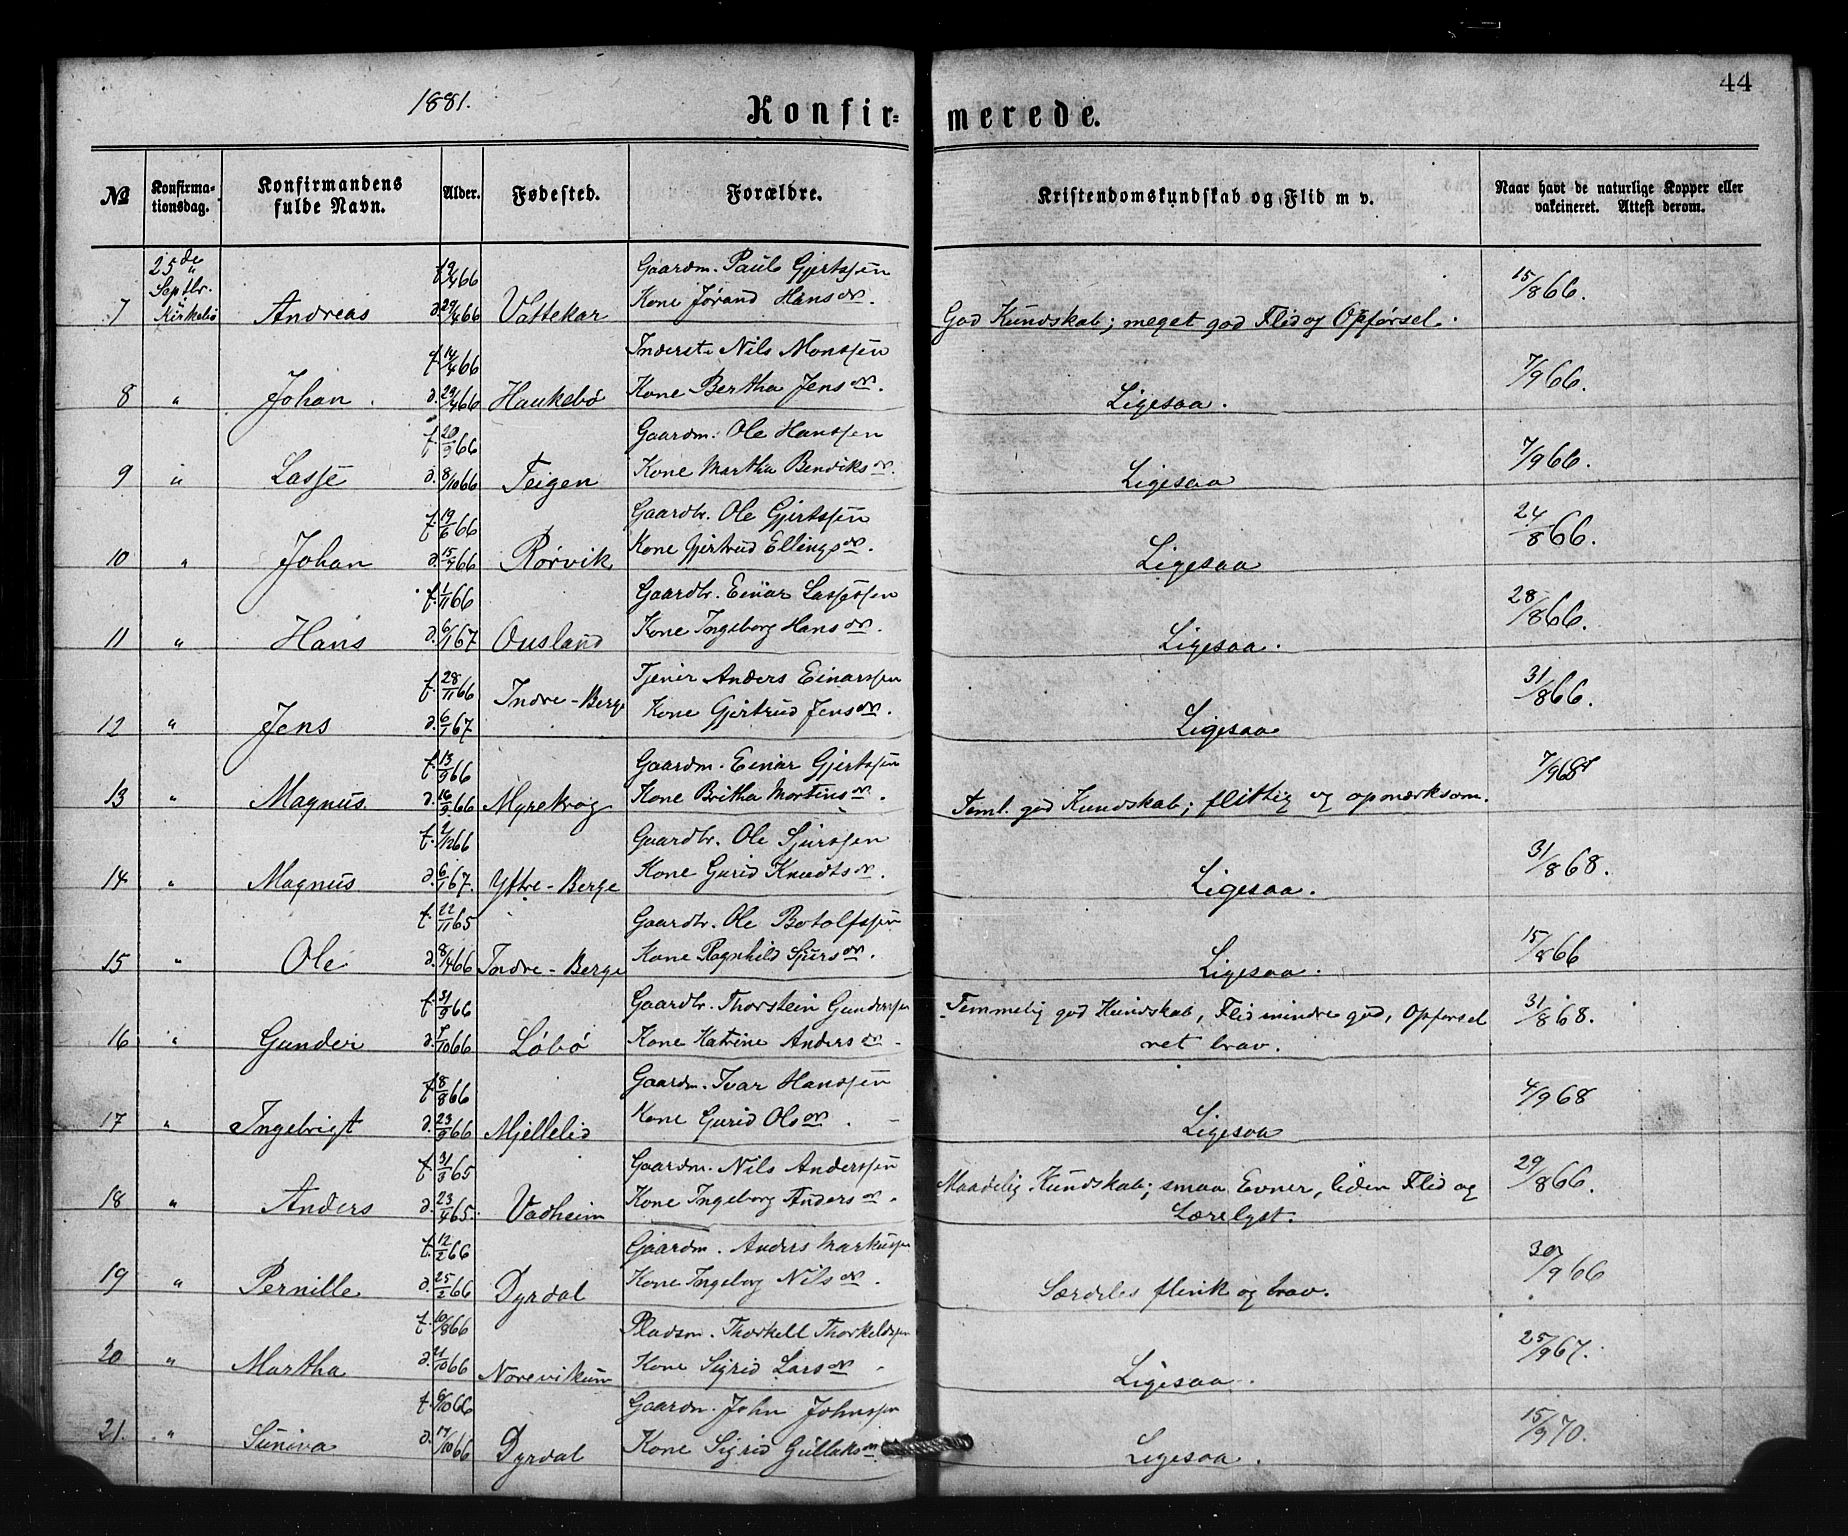 44
1881.
Konfir= merede.
№ Konfirma-tionsdag. Konfirmandens fulde Navn. Alder. Fødested. Forældre. Kristendomskundskab og Flid m v. Naar havt de naturlige Kopper eller vakcineret. Attest derom.
25de Septbr. Kirkebø
f. 19/4 66 Gaardm. Paul Gjertssen 15/8 66.
7 Andreas d. 29/4 66 Vattekar Kone Jørand Hansdr. God Kundskab; meget god Flid og Opførsel.
f. 14/4 66 Inderste Nils Monssen 7/9 66.
8 " Johan. d. 29/4 66 Haukebø Kone Bertha Jensdr. Ligesaa.
f. 20/9 66 Gaardm. Ole Hanssen 7/9 66.
9 " Lasse d. 8/10 66 Teigen Kone Martha Bendiksdr. Ligesaa
f. 19/6 66 Gaardbr. Ole Gjertssen 24/8 66.
10 " Johan d. 15/7 66 Rørvik Kone Gjertrud Ellingsdr. Ligesaa
f. 1/11 66 Gaardbr. Einar Lassessen 28/8 66.
11 " Hans d. 6/1 67 Ousland Kone Ingeborg Hansdr. Ligesaa.
f. 28/11 66 Tjener Anders Einarssen 31/8 66.
12 " Jens d. 6/1 67. Indre-Berge Kone Gjertrud Jensdr. Ligesaa
f. 13/9 66 Gaardm. Einar Gjertssen 7/9 68
13 " Magnus d. 16/9 66 Myrekrog Kone Britha Mortinsdr. Teml. god Kundskab; flittig og opmærksom.
f. 2/12 66 Gaardbr. Ole Sjurssen 31/8 68.
14 " Magnus d. 6/1 67. Yttre-Berge Kone Gurid Knudtsdr. Ligesaa.
f. 22/11 65 Gaardbr. Ole Botolfssen 15/8 66
15 " Ole d. 8/4 66 Indre-Berge Kone Ragnhild Sjursdr. Ligesaa.
f. 31/8 66 Gaardbr. Thorstein Gunderssen Temmelig god Kundskab, Flid mindre god, Opførsel 31/8 68.
16 " Gunder d. 7/10 66 Løbø Kone Katrine Andersdr. ret brav.
f. 8/8 66 Gaardm. Ivar Hanssen 4/9 68
17 " Ingebrigt d. 23/9 66 Mjellelid Kone Gurid Olsdr. Ligesaa
f. 31/3 65 Gaardm. Nils Anderssen Maadelig Kundskab; smaa Evner, liden Flid og 29/8 66.
18 " Anders d. 23/4 65. Vadheim Kone Ingeborg Andersdr. Lærelyst.
f. 12/2 66 Gaardm. Anders Markussen 30/9 66
19 " Pernille d. 25/2 66 Dyrdal Kone Ingeborg Nilsdr. Særdeles flink og brav.
f. 10/8 66 Pladsm. Thorkell Thorkeldssen 25/9 67.
20 " Martha d. 11/10 66 Norevikum Kone Sigrid Larsdr Ligesaa.
f. 6/10 66 Gaardm. John Johnssen 15/9 70.
21. " Suniva d. 17/10 66 Dyrdal Kone Sigrid Gullaksdr Ligesaa.